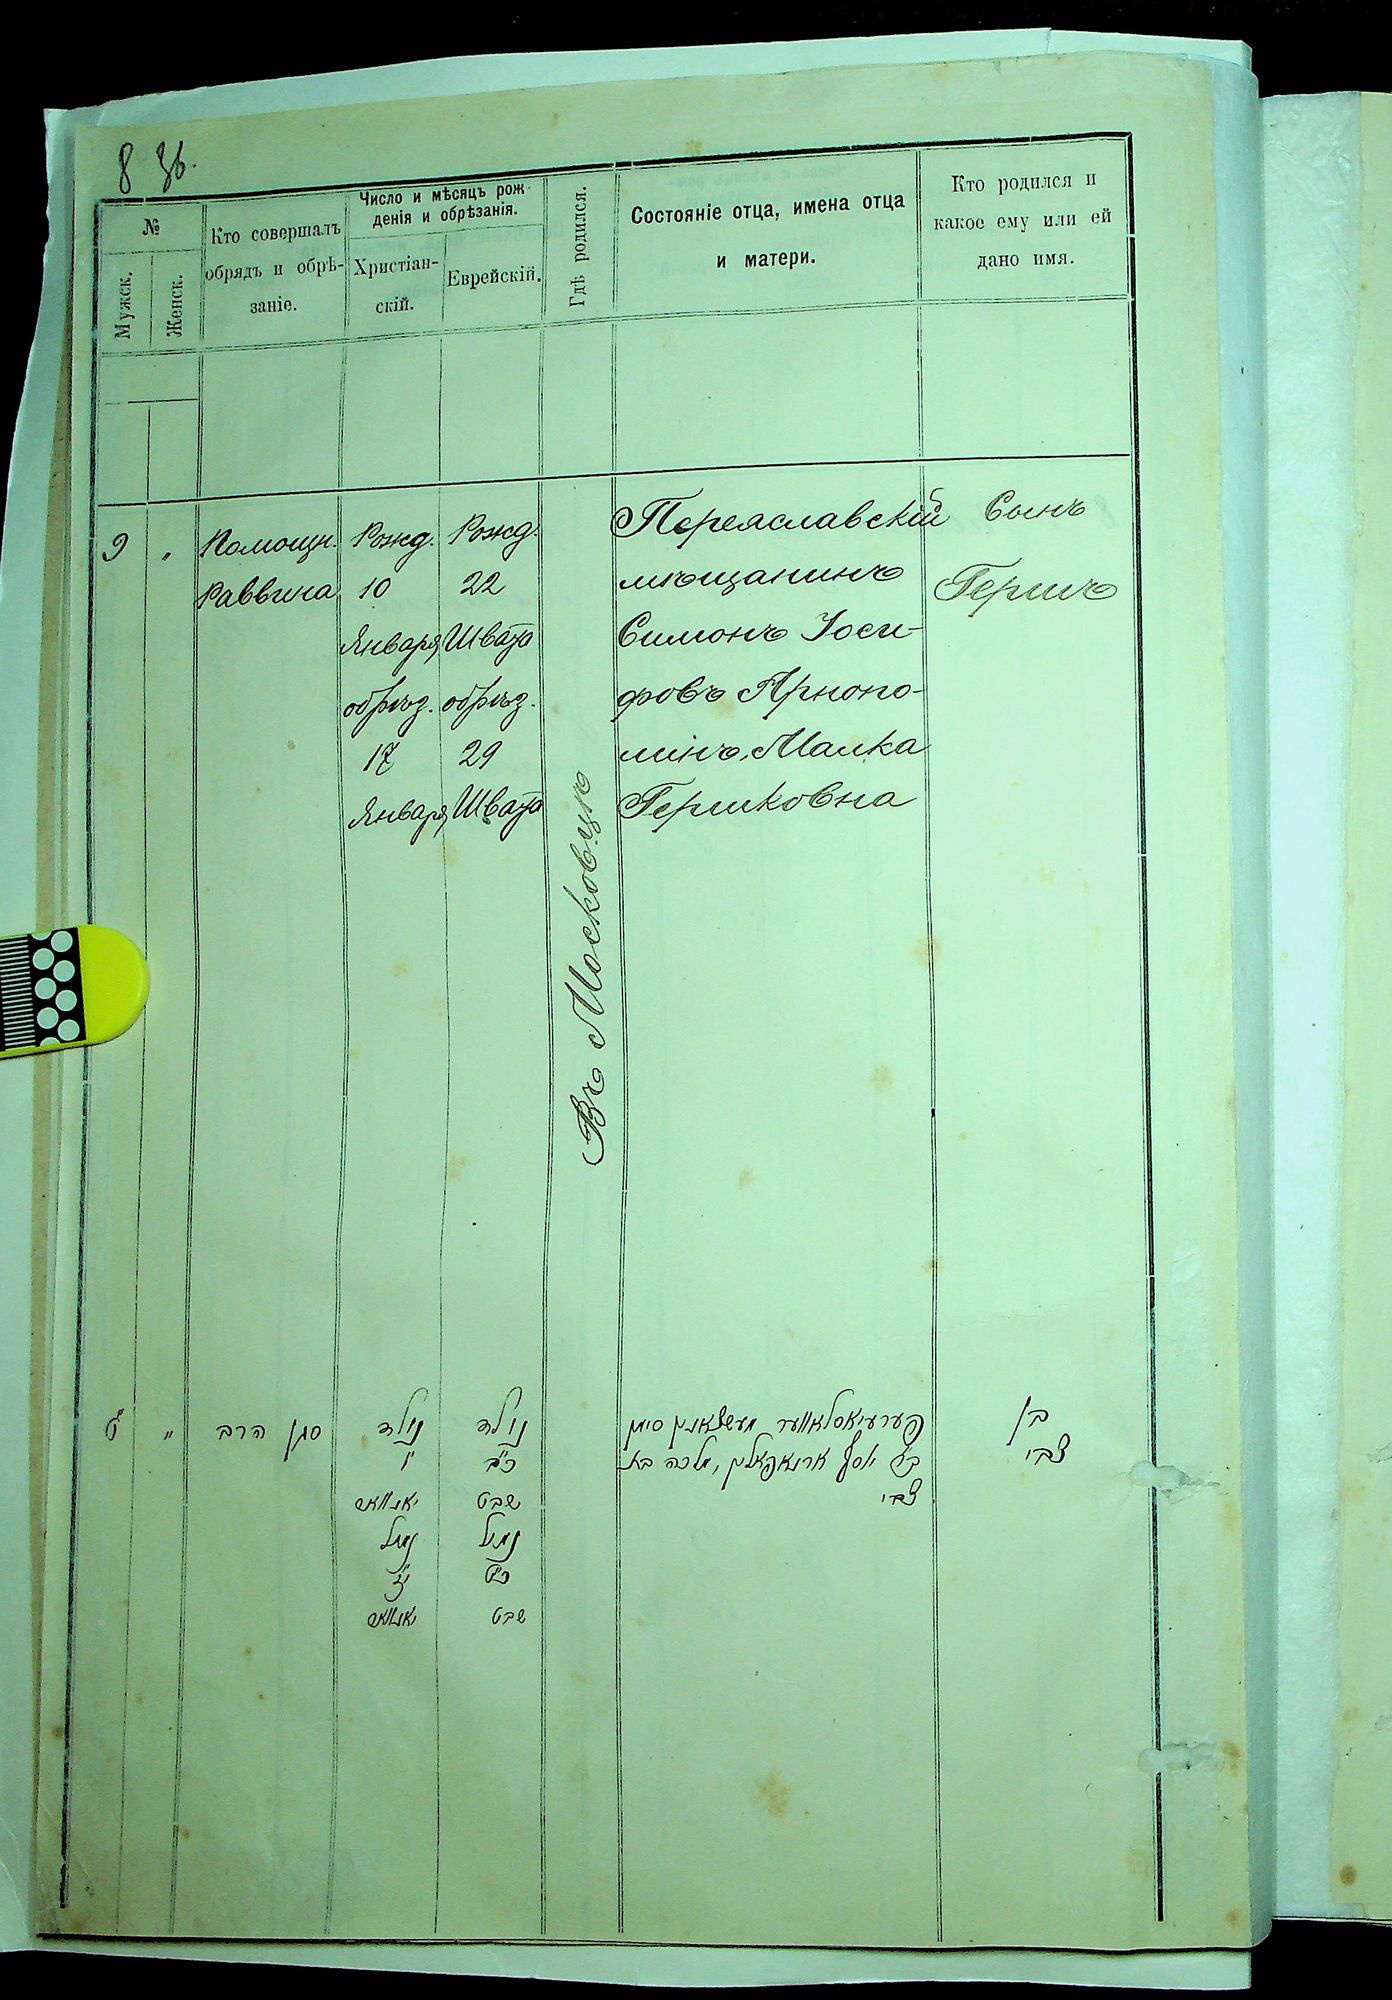 8 зв.
№
Мужск.
Женск.
Кто совершалъ
обрядъ и обрѣ-
заніе.
Число и мѣсяцъ рож-
денія и обрѣзанія.
Христіан-
скій.
Еврейскій.
Гдѣ родился.
Состояніе отца, имена отца
и матери.
Кто родился и
какое ему или ей
дано имя.
9
"
Помощн.
Раввина
Рожд.
10
Января
обрѣз.
17
Января
Рожд.
22
Швата
обрѣз.
29
Швата
Въ Московцѣ
Переяславскій
мѣщанинъ
Симонъ Іоси-
фовъ Арнопо-
линъ, Малка
Гершковна
Сынъ
Гершъ
ט'
"
סגן הרב
נולד
י'
יאנואר
נמול
י"ז
יאנואר
נולד
כ"ב
שבט
נמול
כ"ט
שבט
פערעיאסלאווער מעשצאנין סימן
ב"ר יוסף ארנאפאלין, מלכה בת
צבי
בן
צבי